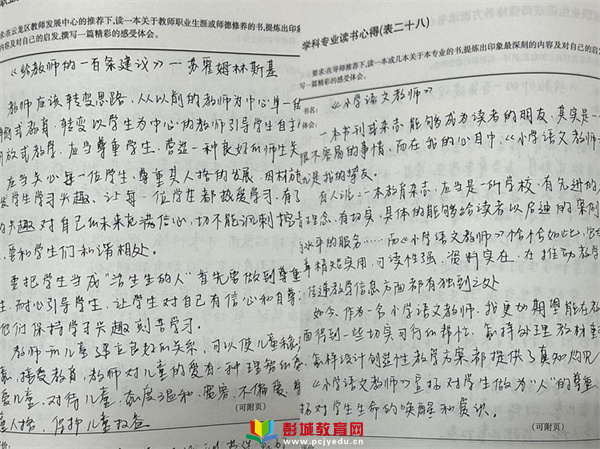 求:在云龙区教师发展中心的推荐下,读一本关于教师职业生涯或师德修养的书,提炼出印
内容及对自己的启发,撰写一篇精彩的感受体会。
《给教师的一百条建议》——苏霍姆林斯基
教师应该转变思路,从以前的教师为中心单一的
式教育,转变以学生为中心的教师引导学生自主
放式教学,应当尊重学生,营造一种良好的师生关
应当关心每一位学生,尊重其人格的发展,因材施
学生学习兴趣、让每一位学生都热爱学习,有了
兴趣对自己和未来充满信心,切不能讽刺挖苦
要和学生们和谐相处。
要把学生当成“活生生的人”首先要做到尊重
生,耐心引导学生,让学生对自己有信心和自尊,
他们保持学习兴趣刻苦学习。
教师和儿童建立良好的关系,可以使儿童积
接受教育,教师对儿童的爱有一种理智和
爱儿童,对待儿童,态度温和、宽容、不偏爱,
童人格,保护儿童权益
(可附页)
学科专业读书心得(表二十八)
要求:在导师推荐下,读一本或几本关于本专业的书,提炼出印象最深刻的内容及对自己的
写一篇精彩的感受体会。
书名:
《小学语文教师》
体会:
一本书刊或杂志能够成为读者的朋友,其实是一
很不容易的事情,而在我的心目中,《小学语文教师》
就是我的挚友。
有人说:一本教育杂志,应当是一所学校,有先进的
理念,有切实、具体的能够给读者以启迪的案例
水平的服务……而《小学语文教师》恰恰如此,它
精短实用,可读性强,资料实在,在推动教学
传递教学信息方面都有独到之处
如今,作为一名小学语文教师,我更加期望能在教
面得到一些切实可行的帮忙,怎样处理教材
怎样设计创造性教学方案都提供了真知灼见
《小学语文教师》是括对学生做为“人”的尊重
括对学生生命的唤醒和赏识。
(可附页)
彭城教育网
www.pcjyedu.cn